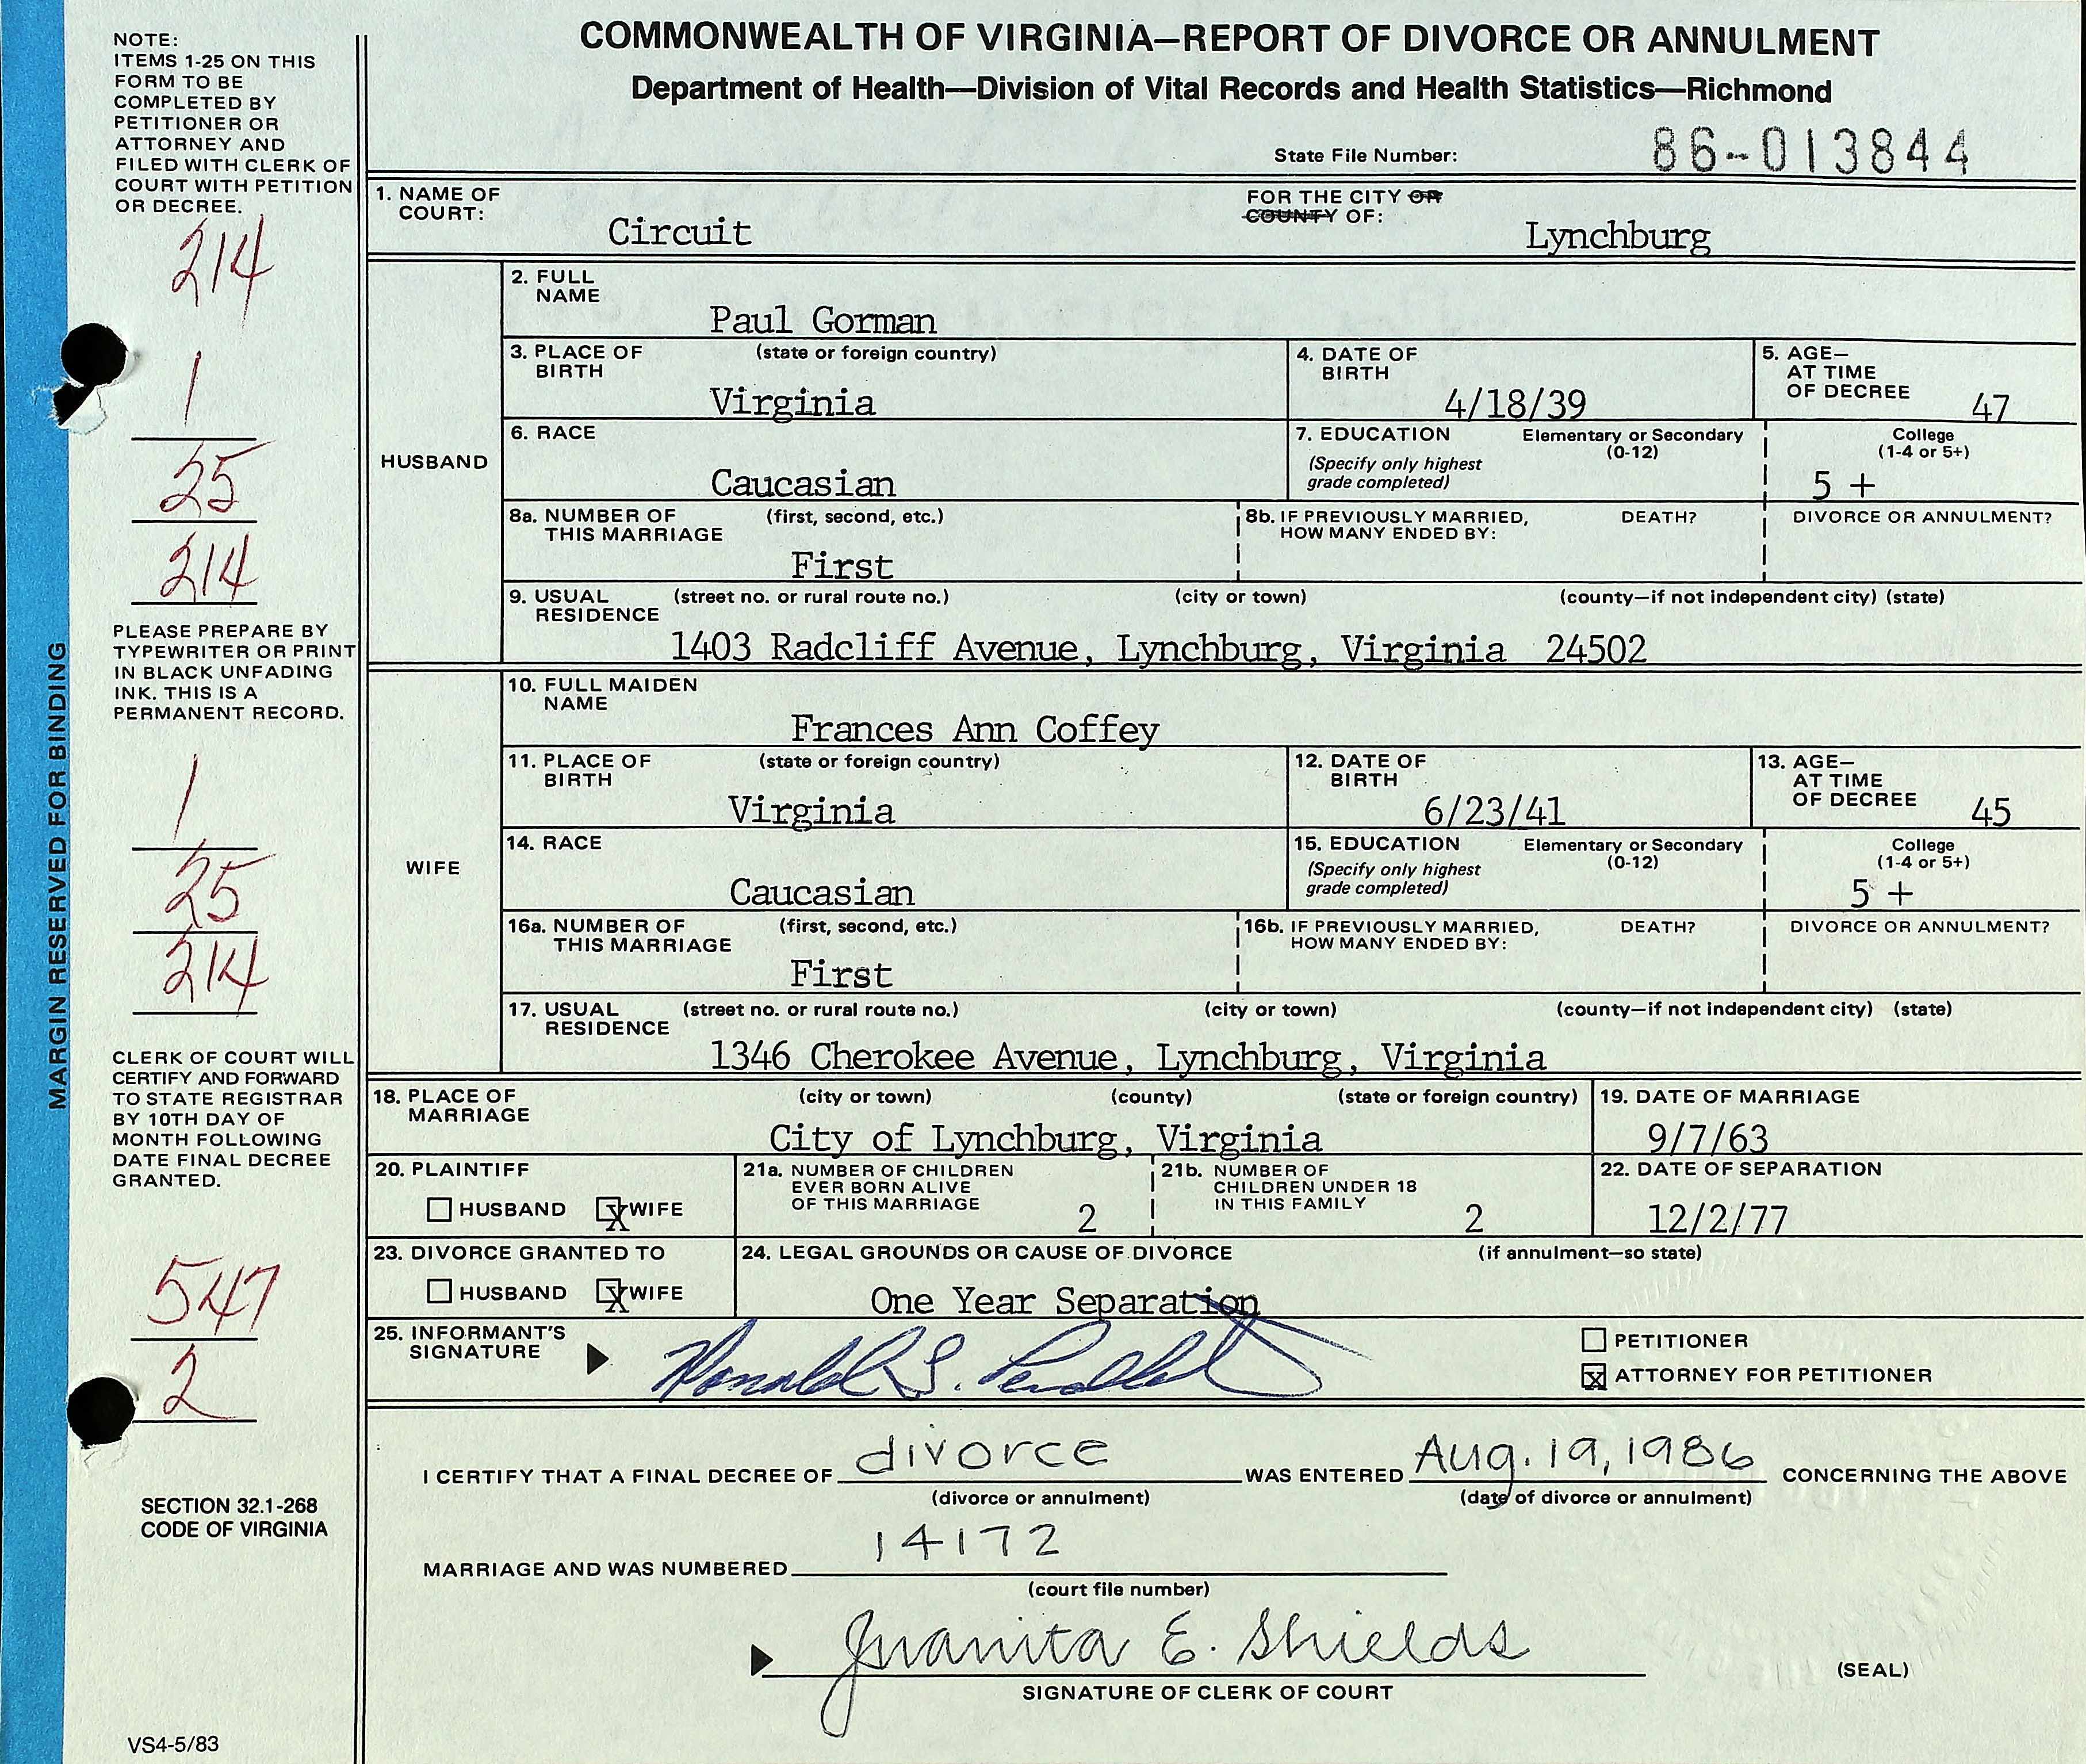 COMMONWEALTH OF VIRGINIA—REPORT OF DIVORCE OR ANNULMENT
Department of Health—Division of Vital Records and Health Statistics—Richmond
State File Number: 86-013844
NOTE:
ITEMS 1-25 ON THIS
FORM TO BE
COMPLETED BY
PETITIONER OR
ATTORNEY AND
FILED WITH CLERK OF
COURT WITH PETITION
OR DECREE.
214
1
25
214
PLEASE PREPARE BY
TYPEWRITER OR PRINT
IN BLACK UNFADING
INK. THIS IS A
PERMANENT RECORD.
1
25
214
CLERK OF COURT WILL
CERTIFY AND FORWARD
TO STATE REGISTRAR
BY 10TH DAY OF
MONTH FOLLOWING
DATE FINAL DECREE
GRANTED.
547
2
SECTION 32.1-268
CODE OF VIRGINIA
VS4-5/83
MARGIN RESERVED FOR BINDING
1. NAME OF
COURT:
Circuit
FOR THE CITY OR
COUNTY OF:
Lynchburg
HUSBAND
2. FULL
NAME
Paul Gorman
3. PLACE OF
BIRTH
(state or foreign country)
Virginia
4. DATE OF
BIRTH
4/18/39
5. AGE—
AT TIME
OF DECREE
47
6. RACE
Caucasian
7. EDUCATION
(Specify only highest
grade completed)
Elementary or Secondary
(0-12)
College
(1-4 or 5+)
5 +
8a. NUMBER OF
THIS MARRIAGE
(first, second, etc.)
First
8b. IF PREVIOUSLY MARRIED,
HOW MANY ENDED BY:
DEATH?
DIVORCE OR ANNULMENT?
9. USUAL
RESIDENCE
(street no. or rural route no.) (city or town) (county—if not independent city) (state)
1403 Radcliff Avenue, Lynchburg, Virginia 24502
WIFE
10. FULL MAIDEN
NAME
Frances Ann Coffey
11. PLACE OF
BIRTH
(state or foreign country)
Virginia
12. DATE OF
BIRTH
6/23/41
13. AGE—
AT TIME
OF DECREE
45
14. RACE
Caucasian
15. EDUCATION
(Specify only highest
grade completed)
Elementary or Secondary
(0-12)
College
(1-4 or 5+)
5 +
16a. NUMBER OF
THIS MARRIAGE
(first, second, etc.)
First
16b. IF PREVIOUSLY MARRIED,
HOW MANY ENDED BY:
DEATH?
DIVORCE OR ANNULMENT?
17. USUAL
RESIDENCE
(street no. or rural route no.) (city or town) (county—if not independent city) (state)
1346 Cherokee Avenue, Lynchburg, Virginia
18. PLACE OF
MARRIAGE
(city or town) (county) (state or foreign country)
City of Lynchburg, Virginia
19. DATE OF MARRIAGE
9/7/63
20. PLAINTIFF
HUSBAND X WIFE
21a. NUMBER OF CHILDREN
EVER BORN ALIVE
OF THIS MARRIAGE
2
21b. NUMBER OF
CHILDREN UNDER 18
IN THIS FAMILY
2
22. DATE OF SEPARATION
12/2/77
23. DIVORCE GRANTED TO
HUSBAND X WIFE
24. LEGAL GROUNDS OR CAUSE OF DIVORCE (if annulment—so state)
One Year Separation
25. INFORMANT'S
SIGNATURE
PETITIONER
X ATTORNEY FOR PETITIONER
I CERTIFY THAT A FINAL DECREE OF divorce WAS ENTERED Aug. 19, 1986 CONCERNING THE ABOVE
(divorce or annulment) (date of divorce or annulment)
MARRIAGE AND WAS NUMBERED 14172
(court file number)
Juanita E. Shields
SIGNATURE OF CLERK OF COURT
(SEAL)